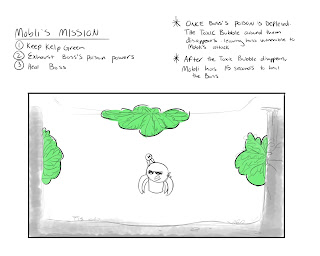 Mobli's MISSION
① Keep Kelp Green
② Exhaust Boss's Poison Powers
③ Heal Boss
* Once Boss's poison is depleted,
The Toxic Bubble around them
disappears leaving boss vulnerable to
Mobli's attack
* After the Toxic Bubble disappears,
Mobli has 15 seconds to heal
the Boss